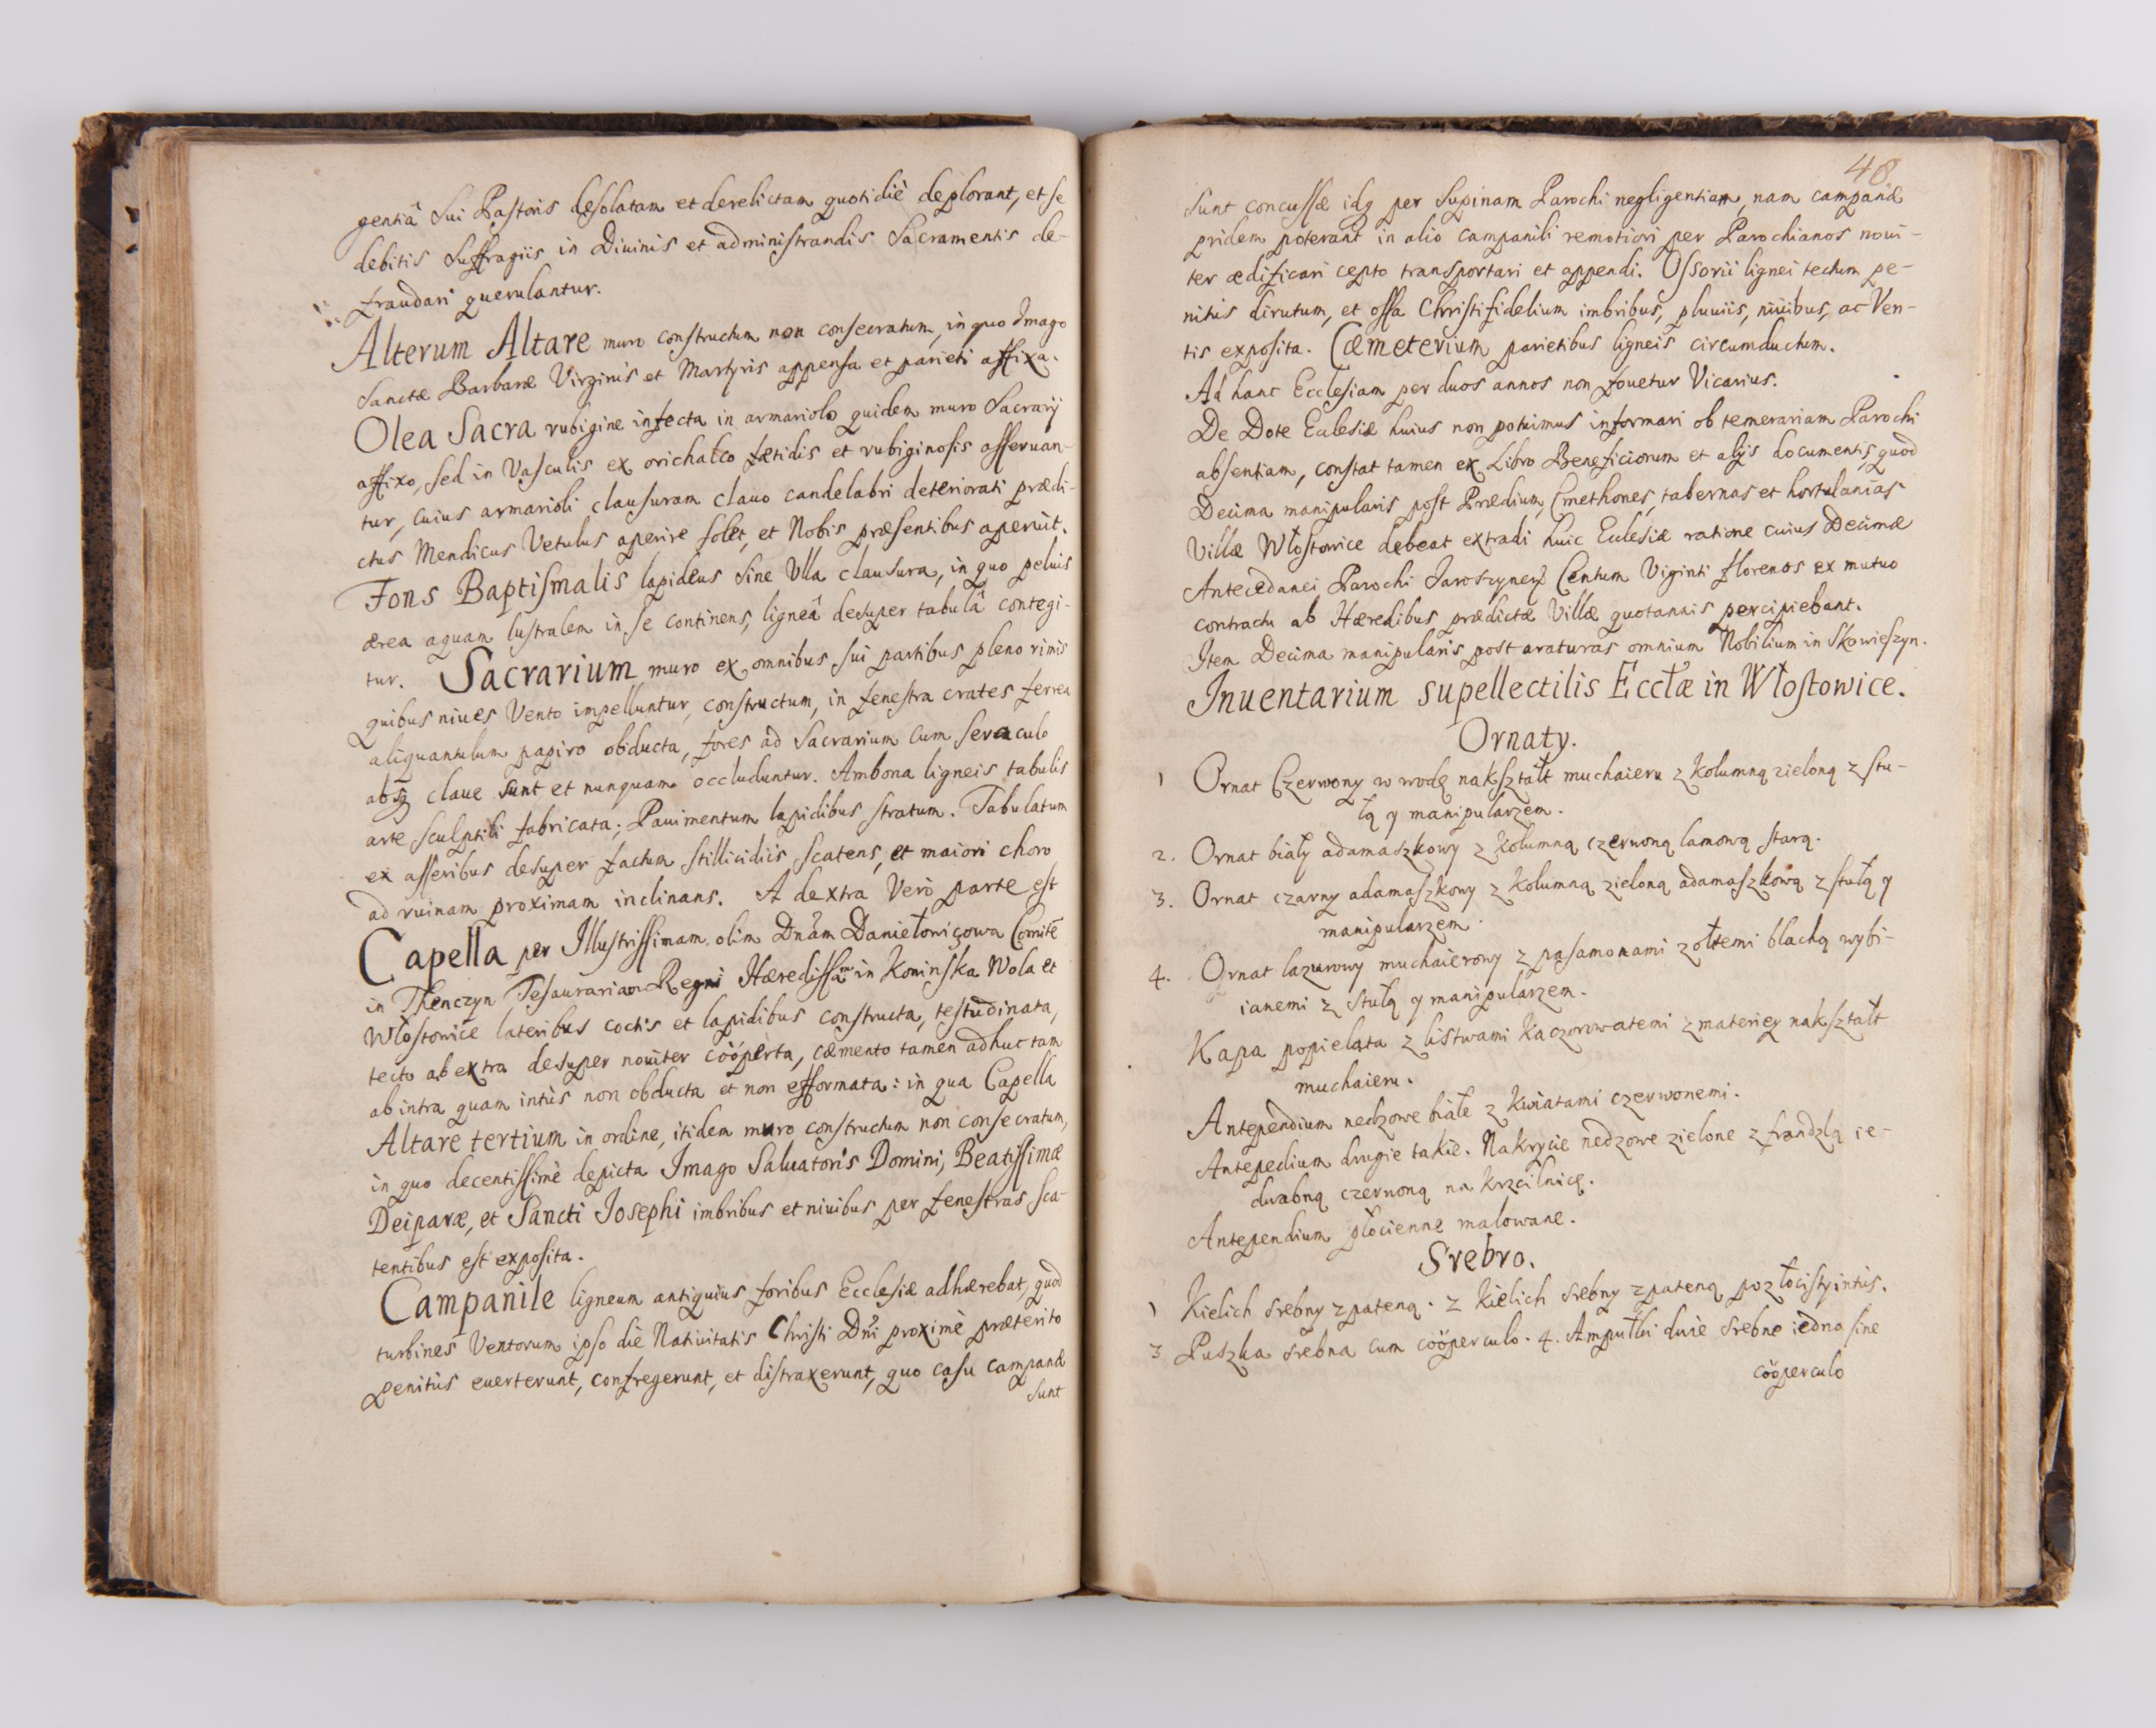 gentiâ sui Pastoris desolatam et derelictam quotidiè deplorant, et se
debitis suffragiis in Diuinis et administrandis Sacramentis de-
fraudari querulantur.
Alterum Altare muro constructum non consecratum, in quo Imago
Sanctæ Barbaræ Virginis et Martyris appensa et parieti affixa.
Olea Sacra rubigine infecta in armariolo quidem muro Sacrarij
affixo, sed in Vasculis ex orichalco fætidis et rubiginosis asseruan-
tur, cuius armarioli clausuram clauo candelabri deteriorati prædi-
ctus Mendicus Vetulus aperire solet, et Nobis præsentibus aperuit.
Fons Baptismalis lapideus sine Vlla clausura, in quo peluis
ærea aquam lustralem in se continens, ligneâ desuper tabulâ contegi-
tur. Sacrarium muro ex omnibus sui partibus pleno rimis
quibus niues Vento impelluntur, constructum, in fenestra crates ferrea
aliquantulum papiro obducta, fores ad Sacrarium cum seraculo
absq; claue sunt et nunquam occluduntur. Ambona ligneis tabulis
arte sculptili fabricata; Pauimentum lapidibus stratum. Tabulatum
ex asseribus desuper factum stillicidiis scatens, et maiori choro
ad ruinam proximam inclinans. A dextra Verò parte est
Capella per Illustrissimam olim Dnãm Daniełowiçowa Comitẽ
in Thenczyn Tesaurariam Regni Hæredissãm in Koninska Wola et
Włostowice lateribus coctis et lapidibus constructa, testudinata,
tecto ab extra desuper nouiter coöperta, cæmento tamen adhuc tam
ab intra quam intùs non obducta et non efformata: in qua Capella
Altare tertium in ordine, itidem muro constructum non consecratum,
in quo decentissimè depicta Imago Saluatoris Domini, Beatissimæ
Deiparæ, et Sancti Iosephi imbribus et niuibus per fenestras sca-
tentibus est exposita.
Campanile ligneum antiquius foribus Ecclesiæ adhærebat, quod
turbines Ventorum ipso die Natiuitatis Christi Dñi proximè præterito
penitùs euerterunt, confregerunt, et distraxerunt, quo casu campanæ
sunt
48
sunt concussæ idq per supinam Parochi negligentiam, nam campanæ
pridem poterant in alio campanili remotiori per Parochianos noui-
ter ædificari cepto transportari et appendi. Ossorii lignei tectum pe-
nitùs dirutum, et ossa Christifidelium imbribus, pluuiis, niuibus, ac Ven-
tis exposita. Cæmeterium parietibus ligneis circumductum.
Ad hanc Ecclesiam per duos annos non fouetur Vicarius.
De Dote Eclesiæ huius non potuimus informari ob temerariam Parochi
absentiam, constat tamen ex Libro Beneficiorum et alijs documentis, quod
Decima manipularis post Prædium, Cmethones, tabernas et hortulanias
Villæ Włostowice debeat extradi huic Eclesiæ ratione cuius Decimæ
Antecedanei Parochi Iaroszyner Centum Viginti florenos ex mutuo
contractu ab Hæredibus prædictæ Villæ quotannis percipiebant.
Item Decima manipularis post araturas omnium Nobilium in Skowieszyn.
Inuentarium supellectilis Eccłæ in Włostowice.
Ornaty.
1 Ornat Czerwony w wodę nakształt muchaieru z kolumną zieloną z stu-
łą y manipularzem.
2. Ornat biały adamaszkowy z kolumną czerwoną lamową starą.
3. Ornat czarny adamaszkowy z kolumną zieloną adamaszkową z stułą y
manipularzem.
4. Ornat lazurowy muchaierowy z pasamonami zołtemi blachą wybi-
ianemi z stułą y manipularzem.
Kapa popielata z listwami kaczorowatemi z materiey nakształt
muchaieru.
Antependium nedzowe białe z kwiatami czerwonemi.
Antepedium drugie takie. Nakrycie nedzowe zielone z frandzlą ie-
dwabną czerwoną na krzcilnicę.
Antependium płocienne malowane.
Srebro.
1 Kielich srebny z pateną. 2 Kielich srebny z pateną pozłocisty intùs.
3 Puszka srebna cum coöperculo. 4. Ampułki dwie srebne iedna sine
coöperculo